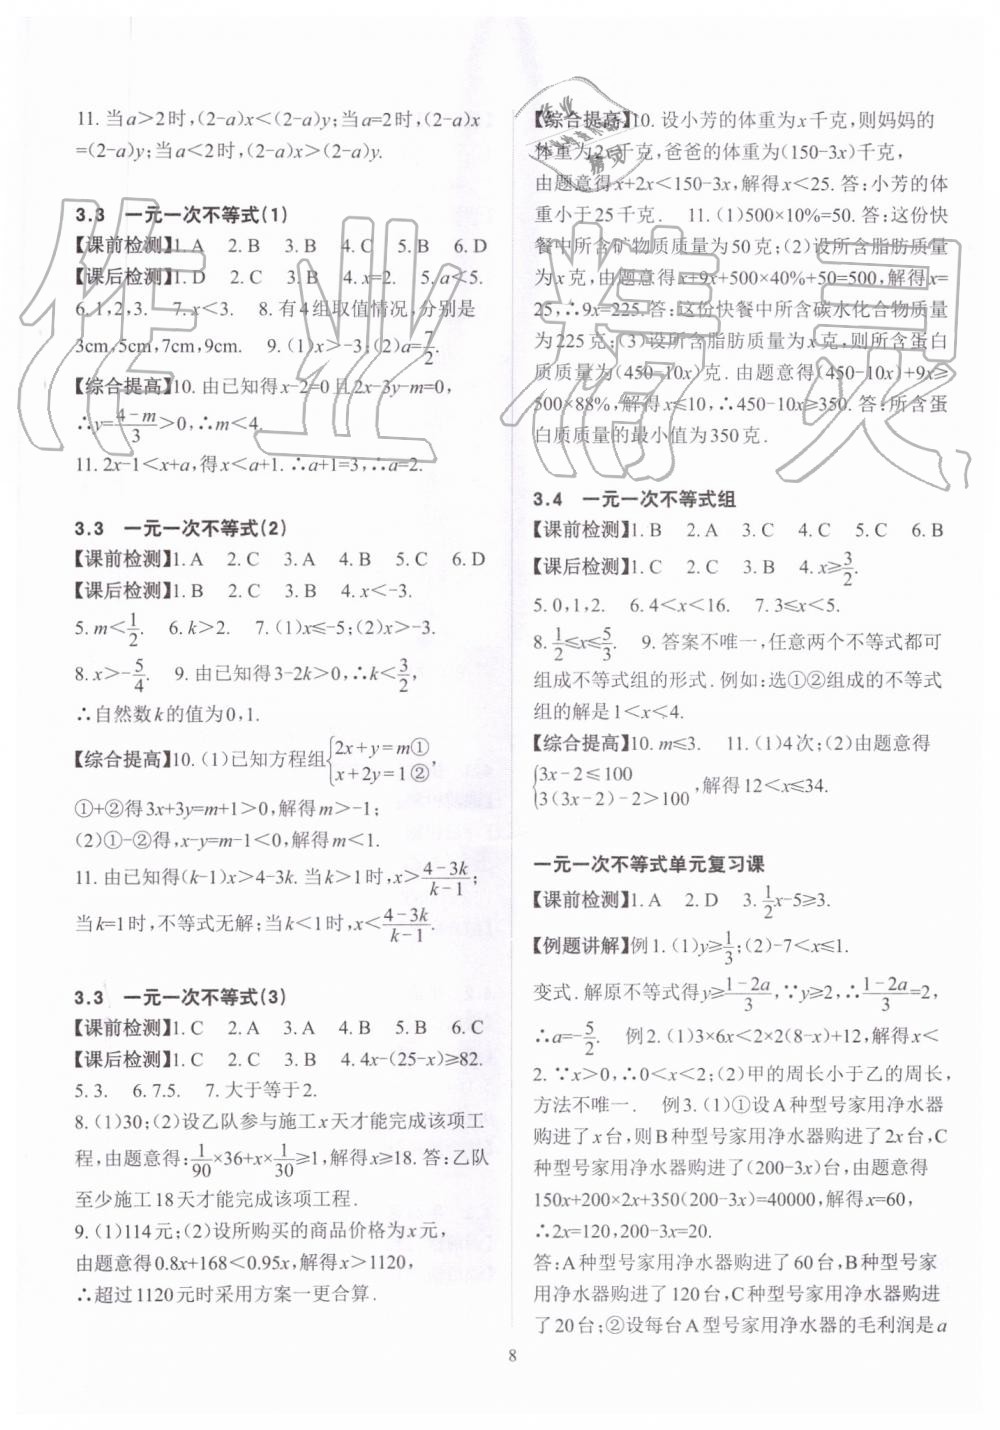 11. 当a>2时,(2-a)x<(2-a)y;当a=2时,(2-a)x
=(2-a)y;当a<2时,(2-a)x>(2-a)y.
3.3 一元一次不等式(1)
【课前检测】1. A 2. B 3. B 4. C 5. B 6. D
【课后检测】1. D 2. B 3. A 4. x=2. 5. a<5.
6. 1,2,3. 7. x<3. 8. 有4组取值情况,分别是
3cm,5cm,7cm,9cm. 9. (1)x>-3;(2)a=7/2.
【综合提高】10. 由已知得x-2=0且2x-3y-m=0,
∴y=(4-m)/3>0,∴m<4.
11. 2x-1<x+a,得x<a+1.∴a+1=3,∴a=2.
3.3 一元一次不等式(2)
【课前检测】1. A 2. C 3. A 4. B 5. C 6. D
【课后检测】1. B 2. C 3. B 4. x<-3.
5. m<1/2. 6. k>2. 7. (1)x≤-5;(2)x>-3.
8. x>-5/4. 9. 由已知得3-2k>0,∴k<3/2,
∴自然数k的值为0,1.
【综合提高】10. (1)已知方程组{2x+y=m① x+2y=1②,
①+②得3x+3y=m+1>0,解得m>-1;
(2)①-②得,x-y=m-1<0,解得m<1.
11. 由已知得(k-1)x>4-3k.当k>1时,x>(4-3k)/(k-1);
当k=1时,不等式无解;当k<1时,x<(4-3k)/(k-1).
3.3 一元一次不等式(3)
【课前检测】1. C 2. A 3. C 4. B 5. B 6. C
【课后检测】1. C 2. C 3. B 4. 4x-(25-x)≥82.
5. 3. 6. 7.5. 7. 大于等于2.
8. (1)30;(2)设乙队参与施工x天才能完成该项工
程,由题意得:1/90×36+x×1/30≥1,解得x≥18.答:乙队
至少施工18天才能完成该项工程.
9. (1)114元;(2)设所购买的商品价格为x元,
由题意得0.8x+168<0.95x,解得x>1120,
∴超过1120元时采用方案一更合算.
【综合提高】10. 设小芳的体重为x千克,则妈妈的
体重为2x千克,爸爸的体重为(150-3x)千克,
由题意得x+2x<150-3x,解得x<25.答:小芳的体
重小于25千克. 11. (1)500×10%=50.答:这份快
餐中所含矿物质质量为50克;(2)设所含脂肪质量
为x克,由题意得x+9x+500×40%+50=500,解得x=
25,∴9x=225.答:这份快餐中所含碳水化合物质量
为225克;(3)设所含脂肪质量为x克,则所含蛋白
质质量为(450-10x)克.由题意得(450-10x)+9x≥
500×88%,解得x≤10,∴450-10x≥350.答:所含蛋
白质质量的最小值为350克.
3.4 一元一次不等式组
【课前检测】1. B 2. A 3. C 4. C 5. C 6. B
【课后检测】1. C 2. C 3. B 4. x≥3/2.
5. 0,1,2. 6. 4<x<16. 7. 3≤x<5.
8. 1/2≤x≤5/3. 9. 答案不唯一,任意两个不等式都可
组成不等式组的形式.例如:选①②组成的不等式
组的解是1<x<4.
【综合提高】10. m≤3. 11. (1)4次;(2)由题意得
{3x-2≤100 3(3x-2)-2>100,解得12<x≤34.
一元一次不等式单元复习课
【课前检测】1. A 2. D 3. 1/2x-5≥3.
【例题讲解】例1. (1)y≥1/3;(2)-7<x≤1.
变式.解原不等式得y≥(1-2a)/3,∵y≥2,∴(1-2a)/3=2,
∴a=-5/2. 例2. (1)3×6x<2×2(8-x)+12,解得x<
2.∵x>0,∴0<x<2;(2)甲的周长小于乙的周长,
方法不唯一. 例3. (1)①设A种型号家用净水器
购进了x台,则B种型号家用净水器购进了2x台,C
种型号家用净水器购进了(200-3x)台,由题意得
150x+200×2x+350(200-3x)=40000,解得x=60,
∴2x=120,200-3x=20.
答:A种型号家用净水器购进了60台,B种型号家
用净水器购进了120台,C种型号家用净水器购进
了20台;②设每台A型号家用净水器的毛利润是a
8
作业精灵